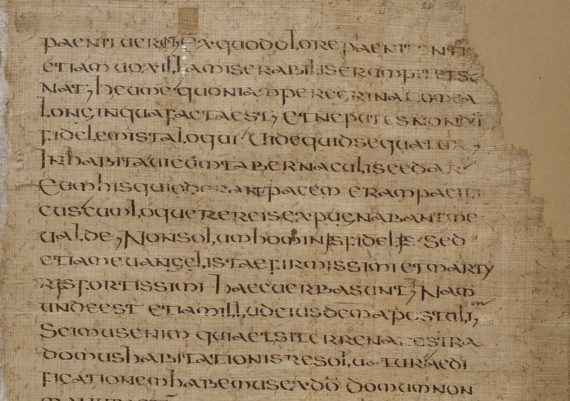 paenituerit ex quo dolore paenit
etiam uox illa miserabilis erumpit et so
nat, heu me quoniam peregrinatio mea
longinqua facta est, et ne putes non dū
fidelem ista loqui Uide quid sequatur
Inhabitaui cum tabernaculis cedar
Cum his qui oderant pacem eram pacifi
cus cum loquerer eis expugnabant me
ualde, Non solum hominis fidelis Sed
etiam euangelistae firmissimi et marty
ris fortissimi haec uerba sunt, Nam
unde est etiam illud eiusdem apostoli,
Scimus enim quia et si terrena estra
domus habitationis resoluatur aedi
ficationem habemus ex dō domum non